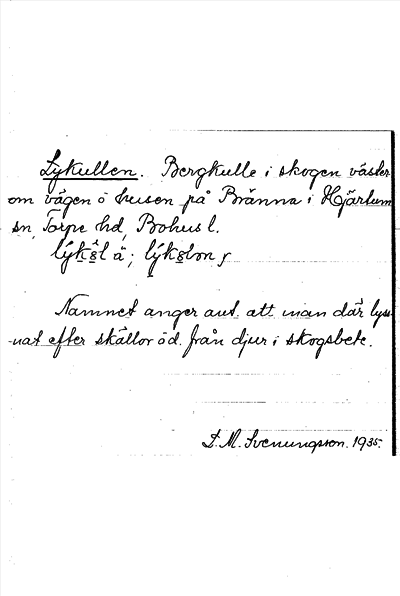 Lykullen. Bergkulle i skogen väster
om vägen o husen på Bränna i Hjärtum
sn, Torpe hd, Bohusl.
Namnet anger ant. att man där lyss-
nat efter skällor o d. från djur i skogsbete.
S. M. Svenungsson. 1935.